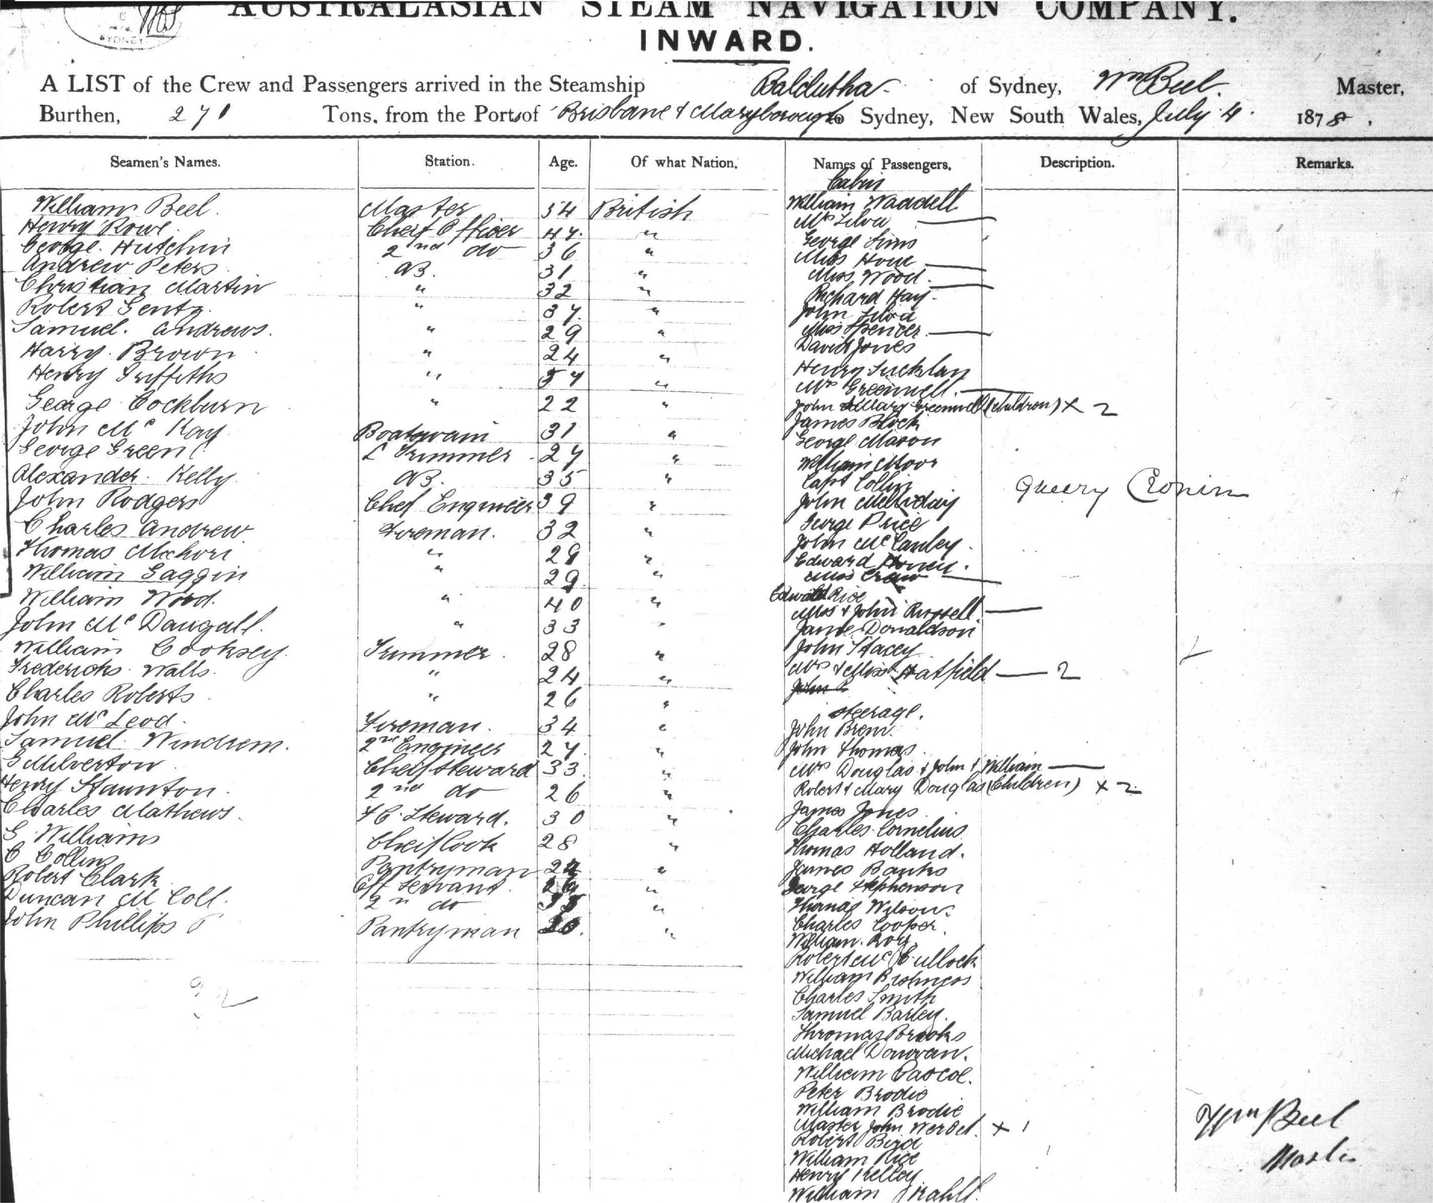 AUSTRALASIAN STEAM NAVIGATION COMPANY.
INWARD.
SYDNEY
A LIST of the Crew and Passengers arrived in the Steamship Balclutha of Sydney, Wm Beel. Master,
Burthen, 271 Tons, from the Port of Brisbane & Maryborough to Sydney, New South Wales, July 4. 1878.
Seamen's Names. Station. Age. Of what Nation. Names of Passengers, Description. Remarks.
Cabin
William Beel. Master 54 British William Waddell
Henry Rowe. Chief Officer 47. " Mrs Silva
George Hutchin 2nd do 36 " George Sims
Andrew Peters. AB. 31 " Miss
Christian Martin " 32 " Miss Wood
Robert " 37 " Richard Hay.
Samuel. Andrews. " 29 " John Silva
Miss Spencer.
Harry. Brown " 24 " David Jones
Henry Griffiths " 57 " Henry
Mrs Greenwell.
George Cockburn " 22 " John & Mary Greenwell (Children) X 2
James Block
John Mc Kay Boatswain 31 " George Mason
George Green Trimmer 27 " William Moor
Alexander Kelly AB. 35 " Capt Collin
Queery Cronin
John Rodgers Chief Engineer 39 " John
George Price
Charles Andrew Fireman. 32 " John McCauley.
Thomas " 28 " Edward
William Gaggin " 29 " Miss
William Wood. " 40 " Edward Rice
Mrs & John Russell
John Mc Dougall. " 33 " James Donaldson
William Cooksey Trimmer 28 " John Stacey
Fredericks Walls " 24 " Mrs & Miss Hatfield 2
Charles Roberts " 26 " John
Steerage.
John McLeod. Fireman. 34 " John Brem.
Samuel Windrem. 2nd Engineer 27 " John Thomas.
G Milverton Chief Steward 33 " Mrs Douglas & John & William
Henry Staunton. 2nd do 26 " Robert & Mary Douglas (Children) X 2
Charles Mathews. F.C. Steward. 30 " James Jones
Charles Cornelius
G. Williams Chief Cook 28 " Thomas Holland.
C Collins Pantryman 24 " James Banks
Robert Clark Off Servant. " George Stephenson
Duncan McColl. 2nd do " Thomas Wilson.
John Phillips Pantryman " Charles Cooper.
William. Ross
Robert McCullock
William
Charles Smith
Samuel Barley.
Thomas Brooks
Michael Donovan.
William Pascoe.
Peter Brodie
William Brodie
Master John X 1
Robert Bird
William Rice
Henry Kelley
William
Wm Beel
Master